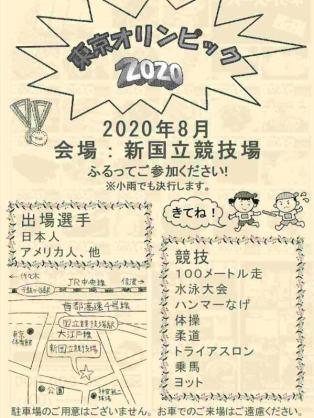 東京オリンピック
2020
2020年8月
会場：新国立競技場
ふるってご参加ください!
※小雨でも決行します。
きてね!
出場選手
日本人
アメリカ人、他
競技
100メートル走
水泳大会
ハンマーなげ
体操
柔道
トライアスロン
乗馬
ヨット
代々木
JR中央線
信濃→
千駄ヶ谷駅
首都高速4号線
国立競技場駅
大江戸線
東京体育館
新国立競技場
公園
神宮第二球場
駐車場のご用意はございません。お車でのご来場はご遠慮ください。